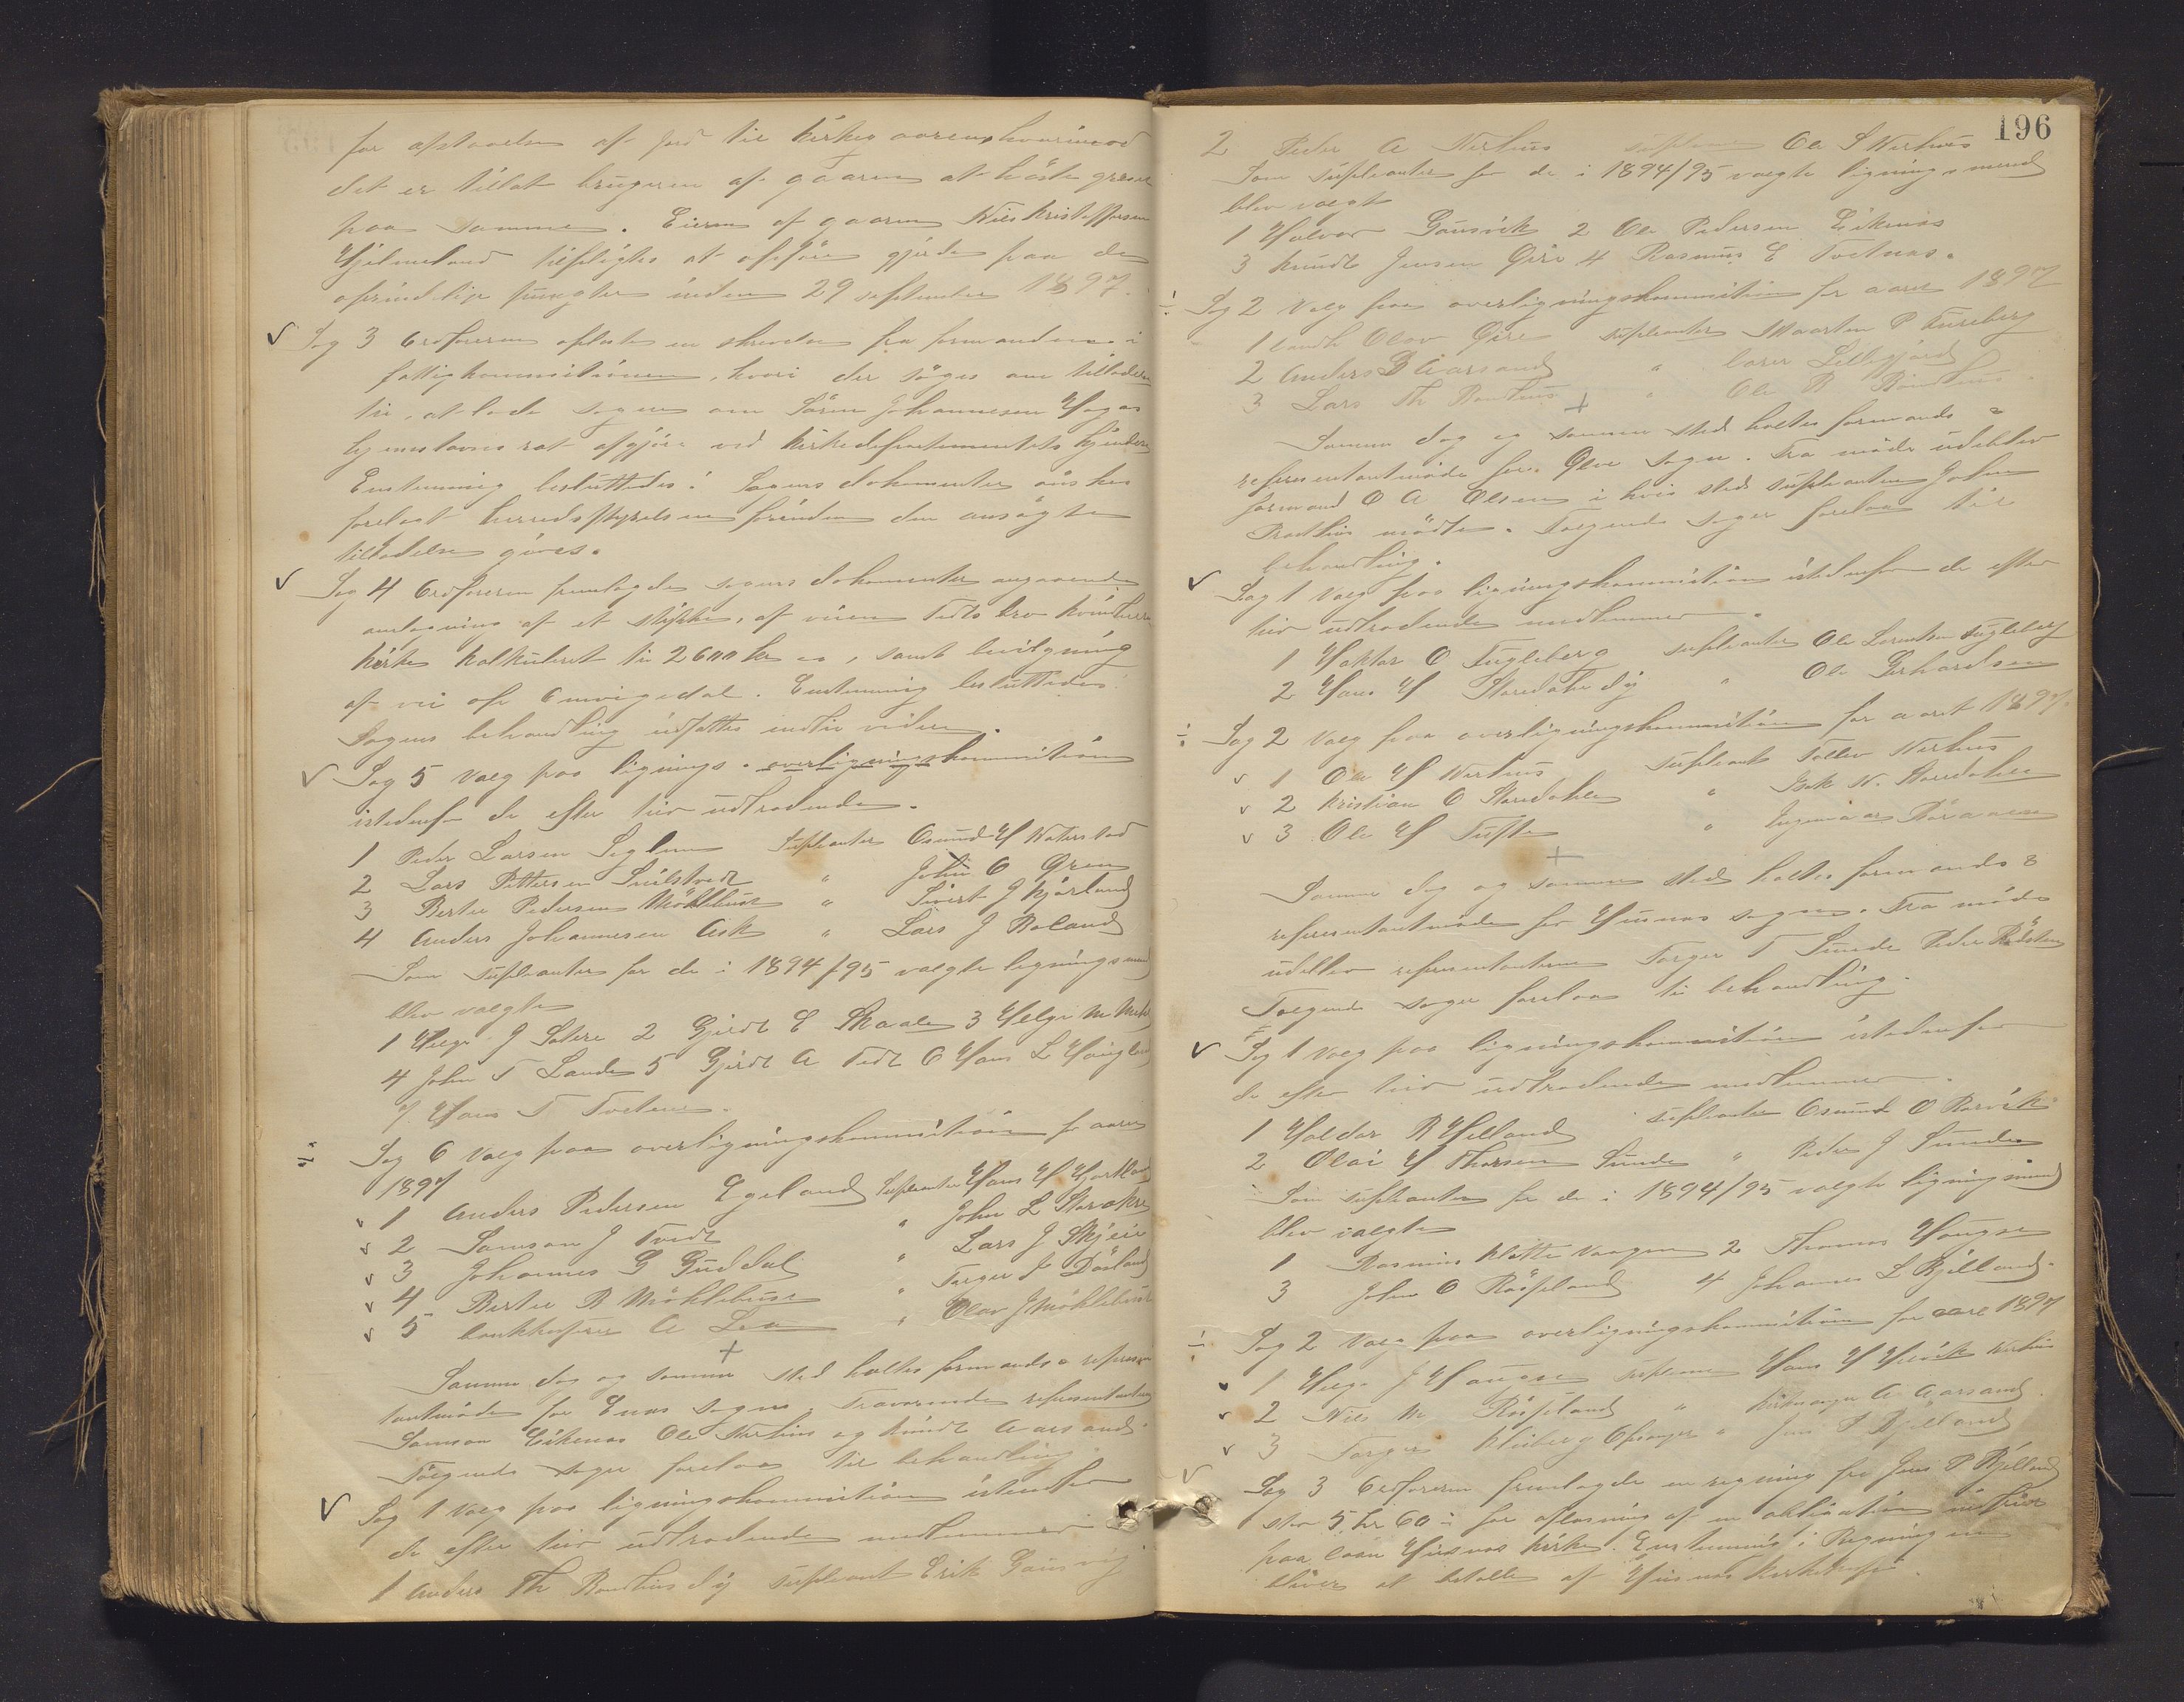 for afstaaelse af jord til kirkegaarene, hvorimod
det er tillat brugeren af gaaren at høste græsset
paa samme. Eieren af gaaren Nils Kristoffersen
Hjelmeland tilpligtes at opføre gjerde paa de
oprindelige pungter inden 29 september 1897.
Sag 3 Ordføreren oplæste en skrivelse fra formanden i
fattigkommisionen, hvori der søges om tilladelse
til at lade sagen om Søren Johannesen Hagas
hjemstavnsret afgjøre ved kirkedepartementets kjendelse
Enstemmig besluttedes: Sagens dokumenter ønskes
forelagt herredsstyrelsen førinden den ansøgte
tilladelse gives.
Sag 4 Ordføreren fremlagde sagens dokumenter angaaende
omlægning af et stykke af veien Tedts bro Kvindherred
kirke kalkuleret til 2600 kr, samt bevilgning
af vei ofr Omvigsdal. Enstemmig besluttedes:
Sagens behandling udsættes indtil videre.
Sag 5 Valg paa lignings- overligningskommission
istedenfor de efter tur udtrædende.
1 Peder Larsen Seglem Supleanter Osmund H Naterstad
2 Lars Pettersen Snilstvedt " John O Græn
3 Bertel Pedersen Møklebust " Sivert J Kjærland
4 Anders Johannesen Ask " Lars J Røland
Som supleanter for de i 1894/95 valgte ligningsmænd
blev valgte
1 Helge J Sætre 2 Gjerdt E Skaale 3 Helge M Mehl
4 John T Lande 5 Gjerdt A Tedt 6 Hans L Haugland
7 Hans T Tveten.
Sag 6 Valg paa overligningskommission for aaret
1897
1 Anders Pedersen Egeland Supleanter Hans H Hjortland
2 Samson J Tvedt " John L Storakre
3 Johannes G Guddal " Lars J Skjeie
4 Bertel B Møklebust " Torger J Døsland
5 bankkasserer A Lea " Olav J Møklebust
Samme dag og samme sted holdtes formands & represen
tantmøde for Enæs sogn. Fraværende representanter
Samson Eikenæs Ole Nerhus og Knudt Aarsand.
Følgende sager forelaa til behandling
Sag 1 Valg paa ligningskommission istedenfor
de efter tur udtrædende medlemmer
1 Anders Th Bondhus d y supleant Erik Gausvig
196
2 Peder A Nerhus supleant Ole S Nerhus
Som supleanter for de i 1894/95 valgte ligningsmænd
blev valgt
1 Halvor Gausvik 2 Ole Pedersen Eikenæs
3 Knudt Jensen Øire 4 Rasmus E Tveitnæs.
Sag 2 Valg paa overligningskommission for aaret 1897
1 landh Olav Øire supleanter Maarten P Fureberg
2 Anders B Aarsand " lærer Lillegjord
3 Lars Th Bondhus " Ole B Bondhus.
Samme dag og samme sted holtes formands &
representantmøde for Ølve sogn. Fra møde udeblev
formand O A Olsen i hvis sted supleanten John
Brathus mødte. Følgende sager forelaa til
behandling.
Sag 1 Valg paa ligningskommission istedenfor de efter
tur udtrædende medlemmer.
1 Haktor O Fugleberg supleanter Ole Larentsen Fugleberg
2 Hans H Haredahl d y " Ole Gerhardsen
Sag 2 Valg paa overligningskommission for aaret 1897.
1 Ole H Nerhus Supleant Tollev Nerhus
2 Kristian O Haredahl " Isak N. Haredahl
3 Ole H Tufte "
Samme dag og samme sted holtes formands &
representantmøde for Husnæs sogn. Fra møde
udeblev representanterne Torger T Sunde Peder Rødsten
Følgende sager forelaa til behandling.
Sag 1 Valg paa ligningskommission istedenfor
de efter tur udtrædende medlemmer.
1 Haldor R Helland supleanter Osmund O Rørvik
2 Olai H Thorsen Sunde " Peder J Sunde
Som supleanter for de i 1894/95 valgte ligningsmænd
blev valgte
1 Rasmus Klætte Vaagen 2 Thomas Haugse
3 John O Røifland 4 Johannes L Kjelland.
Sag 2 Valg paa overligningskommission for aaret 1897
1 Helge J Haugse supleant Hans H Nerhus
2 Nils M Røifland " kirkesanger A Aarsand.
3 Torger Kluberg Opsanger " Jens P Kjelland
Sag 3 Ordføreren fremlagde en regning fra Jens P Kjelland
stor 5 kr 60 ø for aflæsning af en obligation
paa laan Husnæs kirke. Enstemmig: Regningen
bliver at betale af Husnæs kirkekasse.